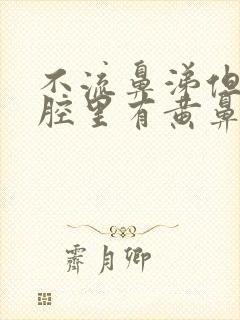 不流鼻涕但
腔里有黄鼻
霁月卿